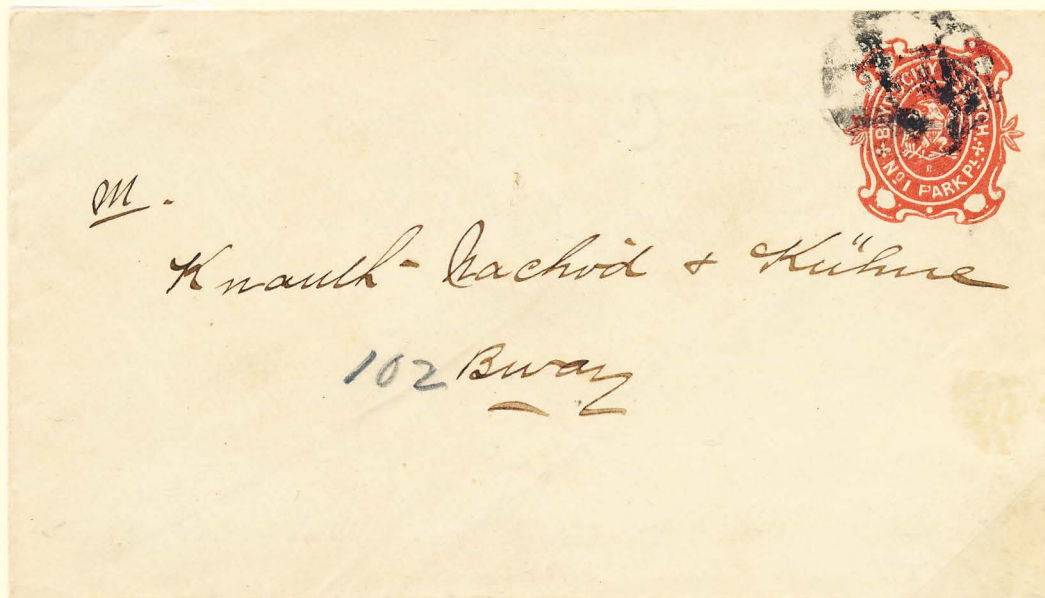 BOYD'S CITY DISPATCH.
No 1 PARK PL.
M.
Knauth-Nachod & Kühne
102 Bway